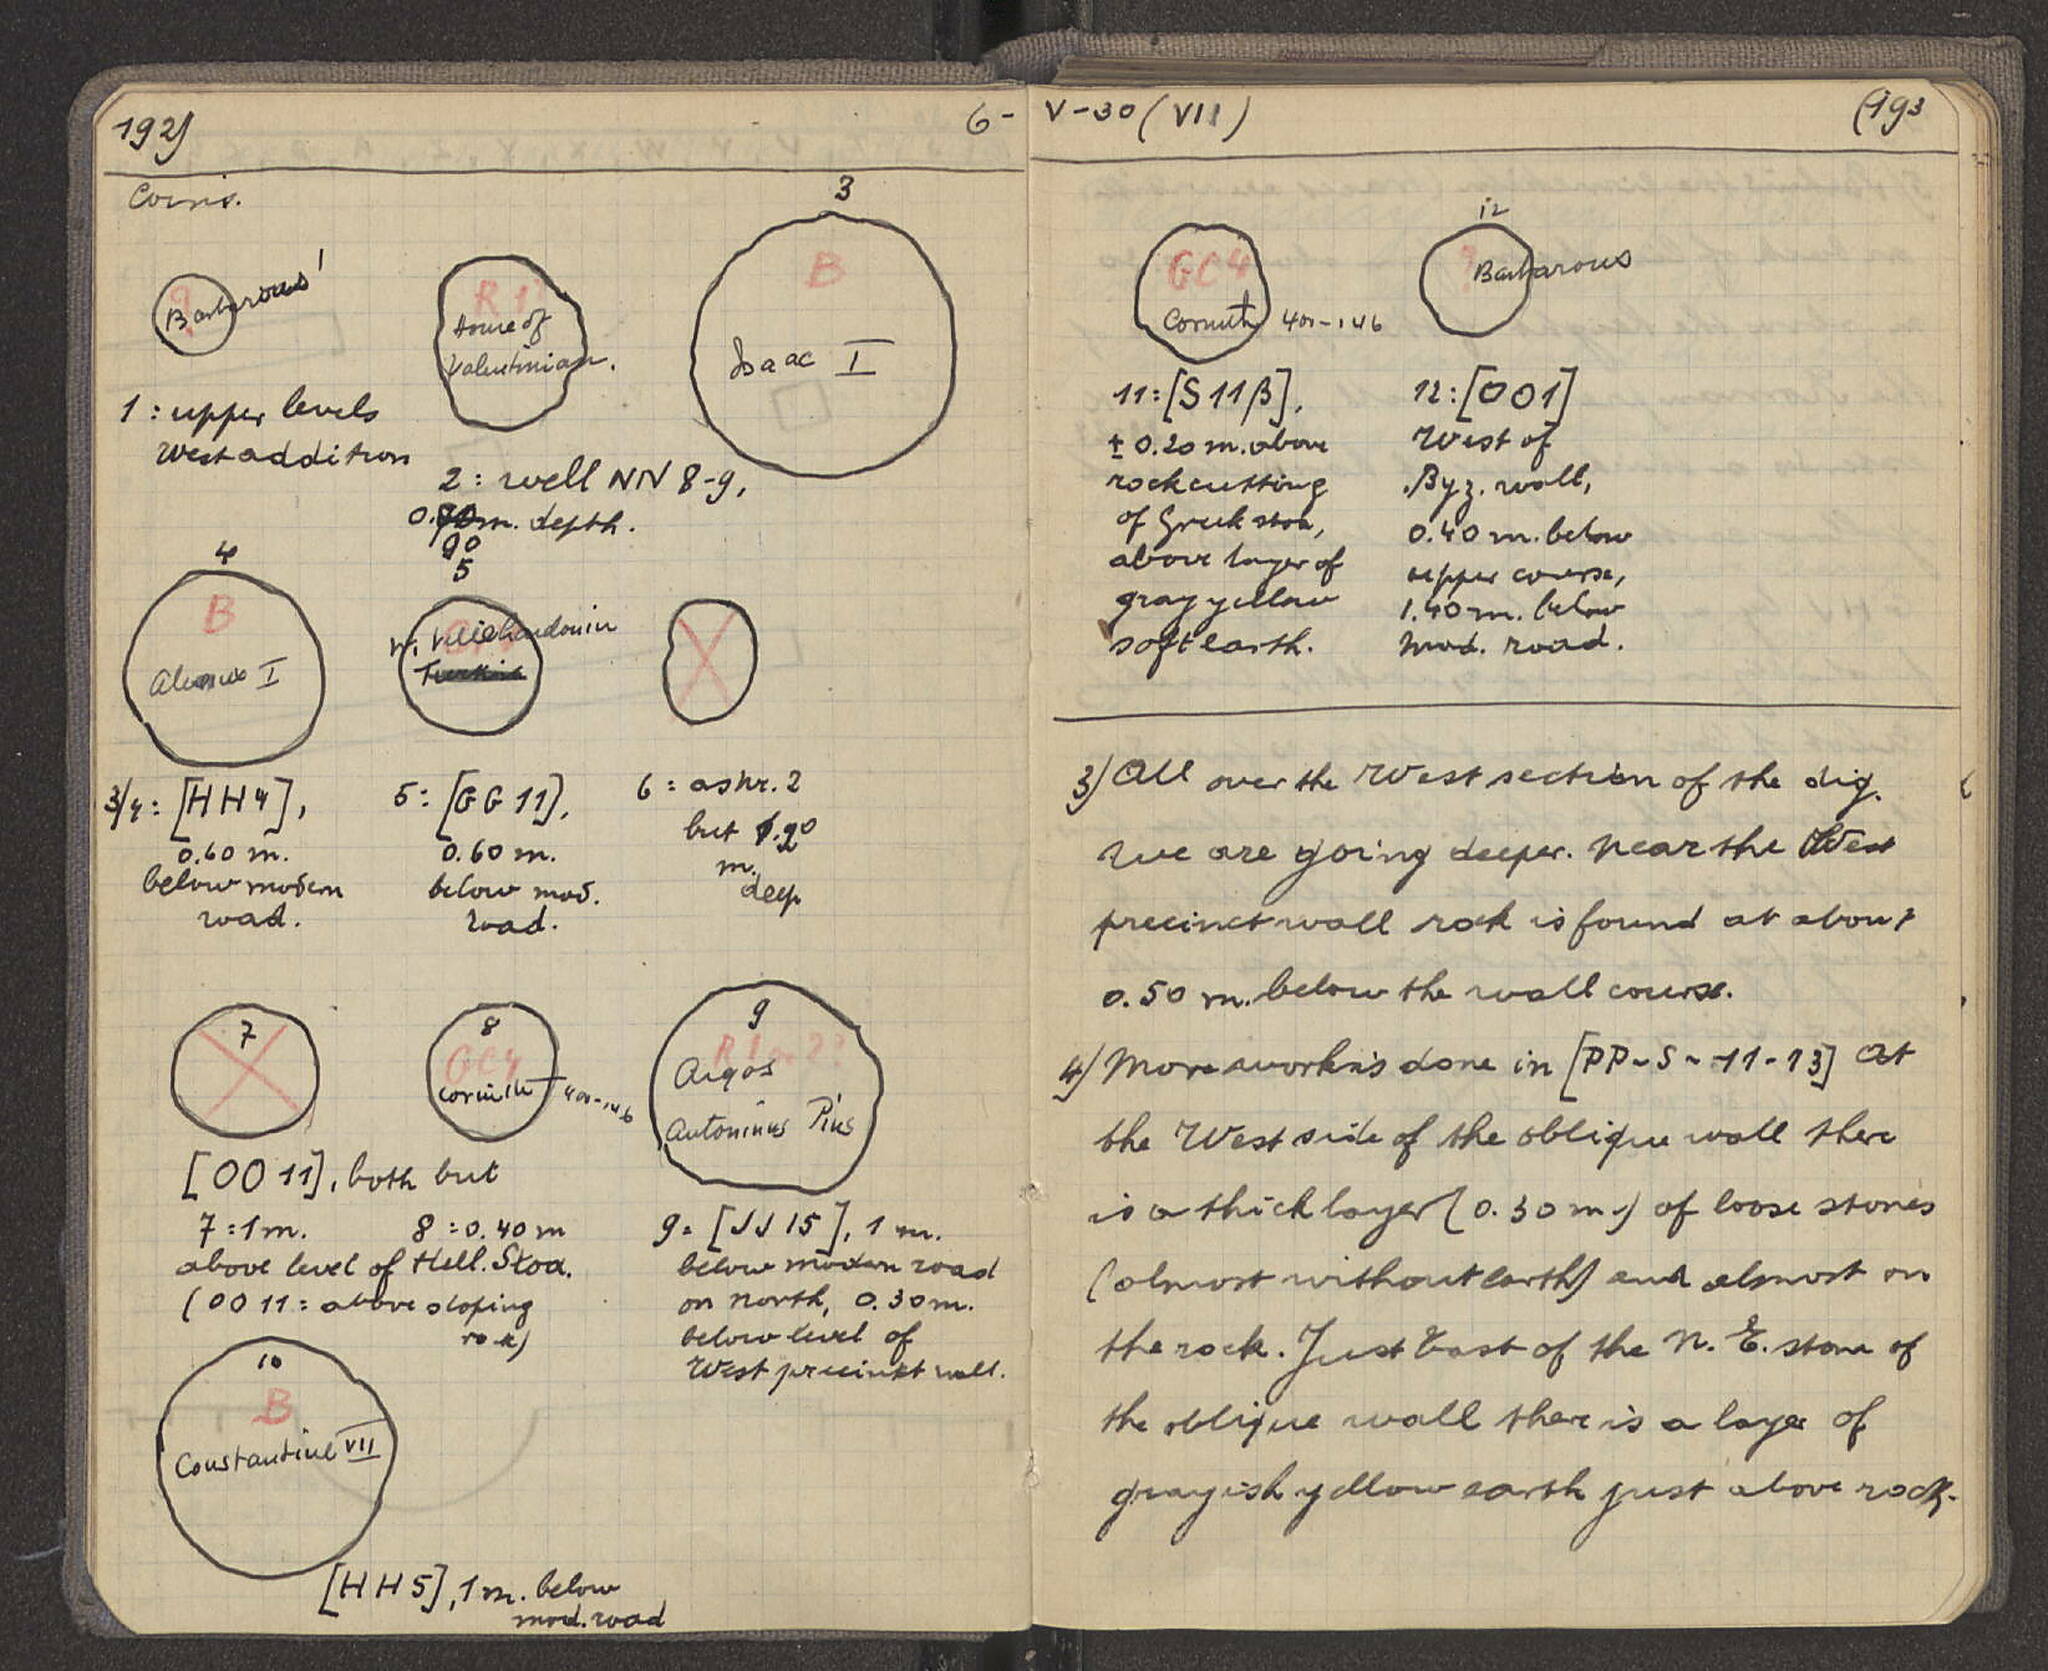 192)
6-
Coins.
1
?
Barbarous
R 1?
House of
Valentinian.
3
B
Isaac I
1 : upper levels
West addition
2 : well NN 8-9,
0. m. depth.
90
4
B
Alexius I
5
W. Villehardouin
Turkish
3/4 : [HH4],
0.60 m.
below modern
road.
5 : [GG 11],
0.60 m.
below mod.
road.
6 : as nr. 2
but 1.20
m.
deep
7
8
GC4
Corinth 400-146
9
R 1 or 2?
Argos
Antoninus Pius
[OO 11], both but
7 : 1 m. 8 : 0.40 m
above level of Hell. Stoa.
(OO 11 : above sloping
rock)
9 : [JJ 15], 1 m.
below modern road
on north, 0.30 m.
below level of
West precinkt wall.
10
B
Constantine VII
[HH5], 1 m. below
mod. road
V-30 (VII)
(193
GC4
Corinth 400-146
12
?
Barbarous
11 : [S 11 β],
± 0.20 m. above
rockcutting
of Greek stoa,
above layer of
gray yellow
soft earth.
12 : [OO1]
West of
Byz. wall,
0.40 m. below
upper course,
1.40 m. below
mod. road.
3) All over the West section of the dig.
we are going deeper. Near the West
precinct wall rock is found at about
0.50 m. below the wall course.
4) More work is done in [PP-S-11-13] At
the West side of the oblique wall there
is a thick layer (0.30 m.) of loose stones
(almost without earth) and almost on
the rock. Just East of the N. E. stone of
the oblique wall there is a layer of
grayish yellow earth just above rock.